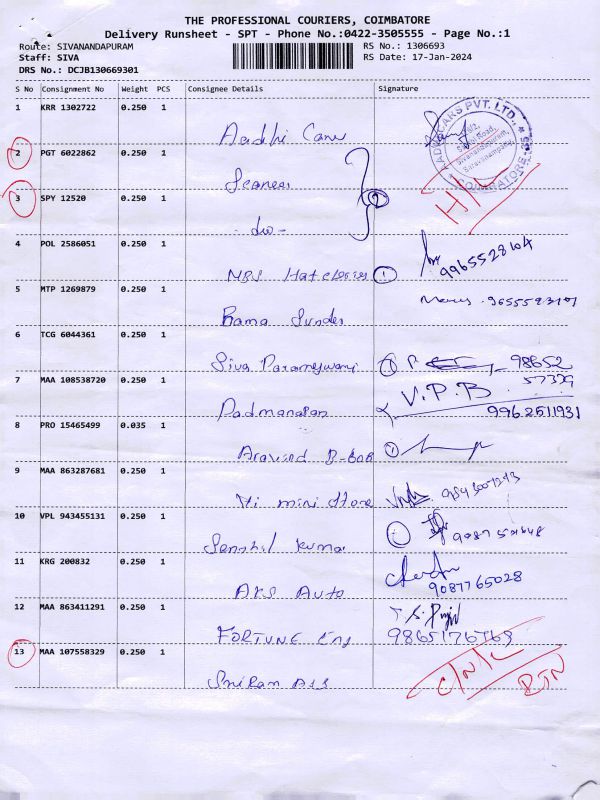 THE PROFESSIONAL COURIERS, COIMBATORE
Delivery Runsheet - SPT - Phone No.:0422-3505555 - Page No.:1
Route: SIVANANDAPURAM
RS No.: 1306693
Staff: SIVA
RS Date: 17-Jan-2024
DRS No.: DCJB130669301
S No Consignment No Weight PCS Consignee Details Signature
1 KRR 1302722 0.250 1 Aadhi Cars
2 PGT 6022862 0.250 1
3 SPY 12520 0.250 1 - do -
H/L
4 POL 2586051 0.250 1 MRS 1 9965528104
5 MTP 1269879 0.250 1 Rama Sunder
6 TCG 6044361 0.250 1 Siva Parameswari 1 98652
57339
7 MAA 108538720 0.250 1 Padmanaban V.P.B
9962511931
8 PRO 15465499 0.035 1 Aravind B-BOB 1
9 MAA 863287681 0.250 1 Vi mini Store
10 VPL 943455131 0.250 1 Senthil Kumar
11 KRG 200832 0.250 1 AKS Auto 9087765028
12 MAA 863411291 0.250 1 FORTUNE Eng 9865176769
13 MAA 107558329 0.250 1 Sriram Ass
C/N/L
RTN